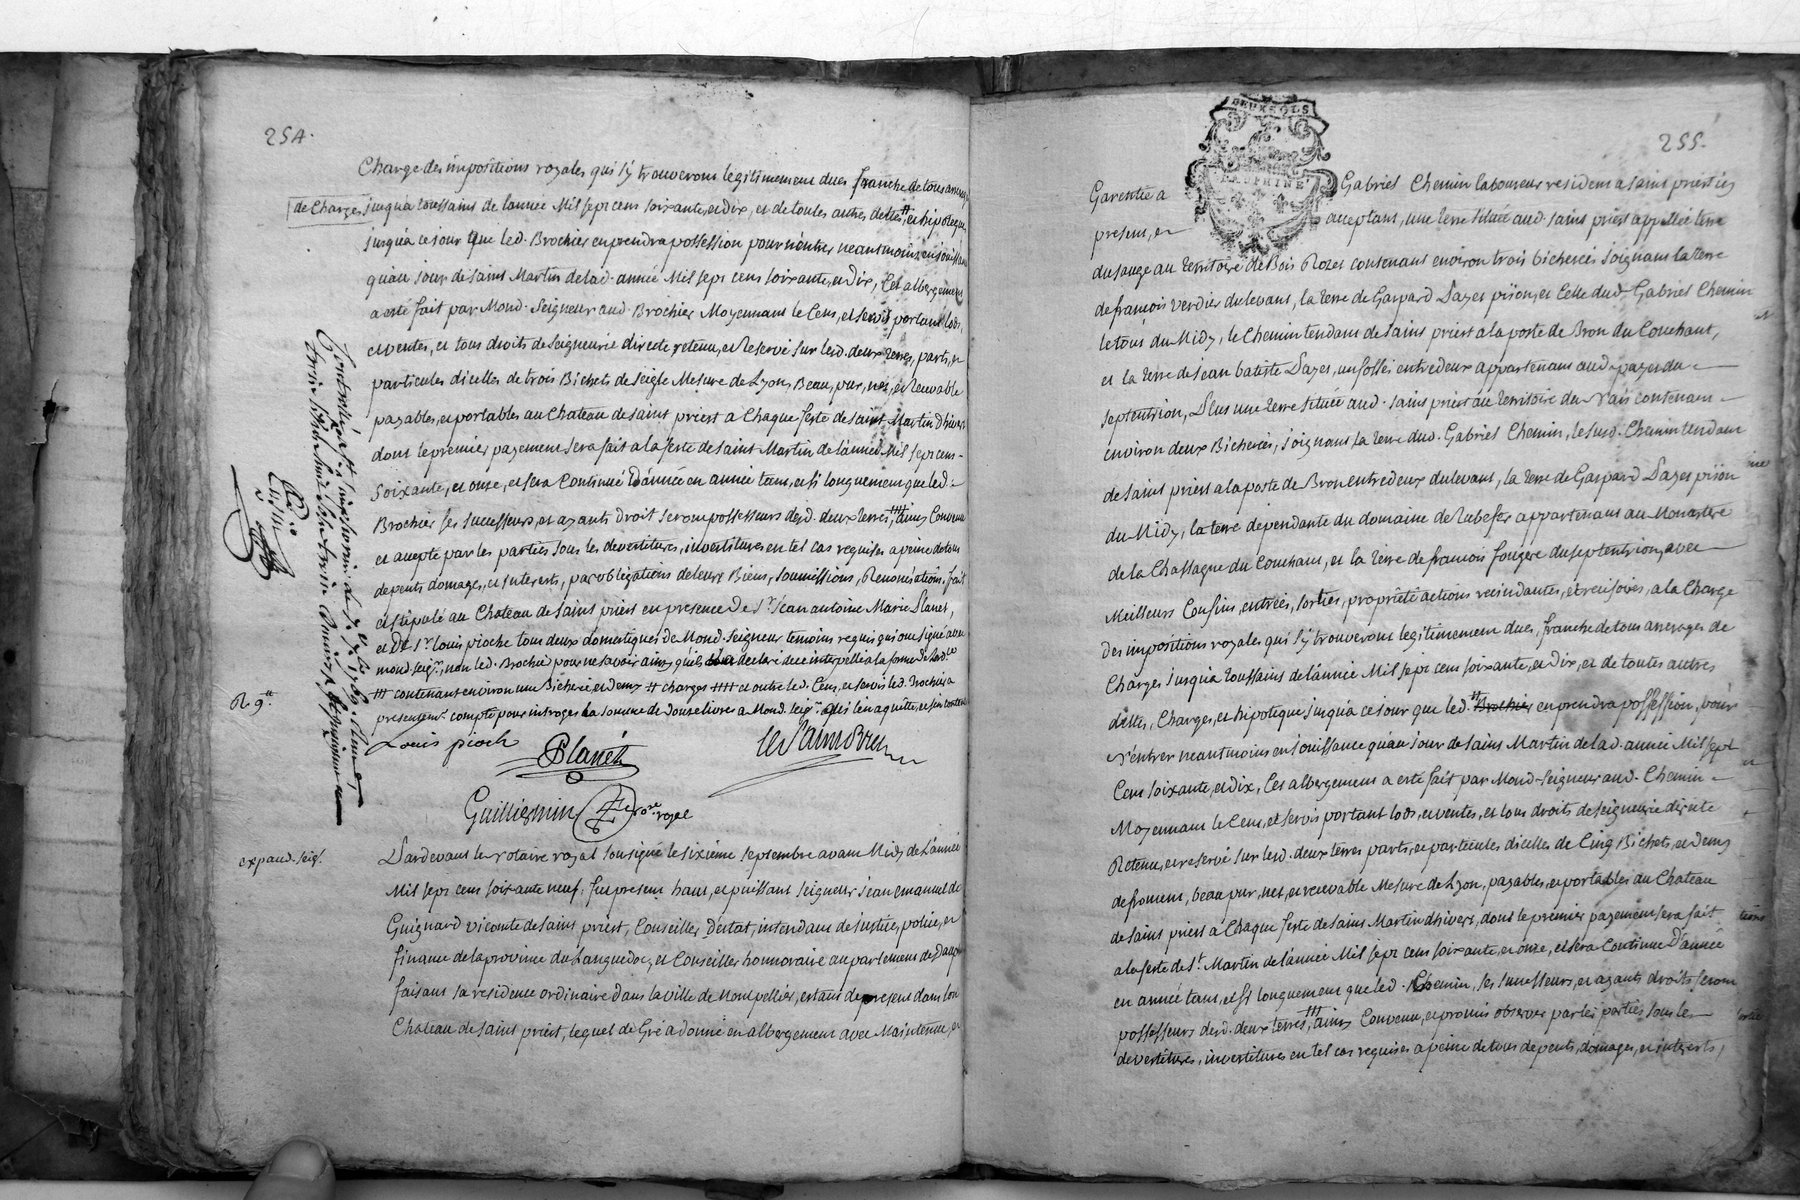 254.
Charge des impositions royales qui s'y trouveront legitimement dues franche de tous arrerages
de Charges jusqu'a toussaint de l'année Mil sept cent soixante, et dix, et de toutes autres dettes # et hipoteques
jusqu'a ce jour que led. Brochier en prendra possession pour n'entrer neantmoins en jouissance
qu'au jour de saint Martin de lad. année Mil sept cent soixante, et dix, Cet albergement
a esté fait par Mond. Seigneur aud. Brochier Moyennant le Cens, et servis portant lods,
et ventes, et tous droits de seigneurie directe retenu, et Reservé sur lesd. deux terres, parts, et
particules dicelles de trois Bichets de seigle Mesure de Lyon, Beau, pur, net, et Recevable
payables, et portables au Chateau de saint priest a Chaque feste de saint Martin d'hivert
dont le premier payement sera fait a la feste de saint Martin de l'année Mil sept cent-
Soixante, et onze, et sera Continué d'année en année tant, et si longuement que led.
Brochier ses successeurs, et ayants droit seront possesseurs desd. deux terres, #### ainsy Convenu
et accepté par les parties sous les devestitures, investitures en tel cas requises a peine de tous
depents domages, et interests, par obligations de leurs Biens, soumissions, Renonciations, fait
et stipulé au Chateau de saint priest en presence De Sr. Jean antoine Marie Planet,
et De Sr. Louis pioche tous deux domestiques de Mond. Seigneur temoins requis qui ont signé avec
mond. seigr., non led. Brochier pour ne savoir ainsy qu'il a declaré de ce interpellé a la forme de l'ord.ce
### contenant environ une Bicherée, et demy # charges #### et outre led. Cens, et servis led. Brochier a
presentemt. compté pour introges la somme de Douze livres a Mond. seigr. qui l'en a quitté, et s'en contente
R. 9.s
Louis pioch Planet de Saint Priest
Guilliermin no.re royal
exp. aud. seigr.
Pardevant le notaire royal sousigné le sixième septembre avant Midy de l'année
Mil sept cent soixante neuf, fut present haut, et puissant seigneur Jean emanuel de
Guignard vicomte de saint priest, Conseiller d'estat, intendant de justice, police, et
finance de la province du Languedoc, et Conseiller honnoraire au parlement de Dauphiné
faisant sa residence ordinaire dans la ville de Montpellier, estant de present dans son
Chateau de saint priest, lequel de Gré a donné en albergement avec Maintenue, et
DEUX SOLS
DAUPHINE
255.
Garentie a Gabriel Chemin laboureur resident a saint priest icy
present, et acceptant, une terre située aud. saint priest appellée terre
du sauge au territoire de Bois Rozet contenant environ trois bicherées joignant la terre
de françois verdier du levant, la terre de Gaspard Payet pijon, et Celle dud. Gabriel Chemin
le tout du Midy, le Chemin tendant de saint priest a la poste de Bron du Couchant,
et la terre de jean batiste Payet, un fossés entredeux appartenant aud. payet du
septentrion, Plus une terre située aud. saint priest au territoire du vais contenant
environ deux Bicherées, joignant la terre dud. Gabriel Chemin, le susd. Chemin tendant
de saint priest a la poste de Bron entredeux du levant, la terre de Gaspard Payet pijon
du Midy, la terre dependante du domaine de appartenant au Monastere
de la Chassagne du Couchant, et la terre de francois fougere du septentrion, avec
Meilleurs Confins, entrées, sorties, proprieté actions rescindantes, et rescisoires, a la Charge
Des impositions royales qui s'y trouveront legitimement dues, franche de tous arrerages de
Charges jusqu'a toussaint de l'année Mil sept cent soixante, et dix, et de toutes autres
dettes, Charges, et hipoteque jusqu'a ce jour que led. # Brochier en prendra possession, pour
n'entrer neantmoins en jouissance qu'au jour de saint Martin de lad. année Mil sept
Cent soixante, et dix, Cet albergement a esté fait par Mond. seigneur aud. Chemin
Moyennant le Cens, et servis portant lods, et ventes, et tous droits de seigneurie directe
Retenu, et reservé sur lesd. deux terres parts, et particules dicelles de Cinq Bichets, et demy
de froment, beau pur, net, et recevable Mesure de Lyon, payables, et portables au Chateau
de saint priest a Chaque feste de saint Martin d'hivert, dont le premier payement sera fait
a la feste de St. Martin de l'année Mil sept cent soixante, et onze, et sera Continué D'année
en année tant, et si longuement que led. Chemin, ses successeurs, et ayants droits seront
possesseurs desd. deux terres, ### ainsy Convenu, et promis observer par les parties sous les
devestitures, investitures en tel cas requises a peine de tous depents, domages, et interests,